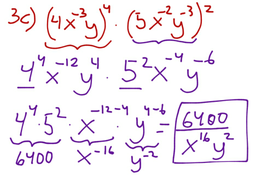 3c) (4x⁻³y)⁴ · (5x⁻²y⁻³)²
4⁴x⁻¹²y⁴ · 5²x⁻⁴y⁻⁶
4⁴·5² · x⁻¹²⁻⁴ · y⁴⁻⁶ = 6400/x¹⁶y²
6400 x⁻¹⁶ y⁻²